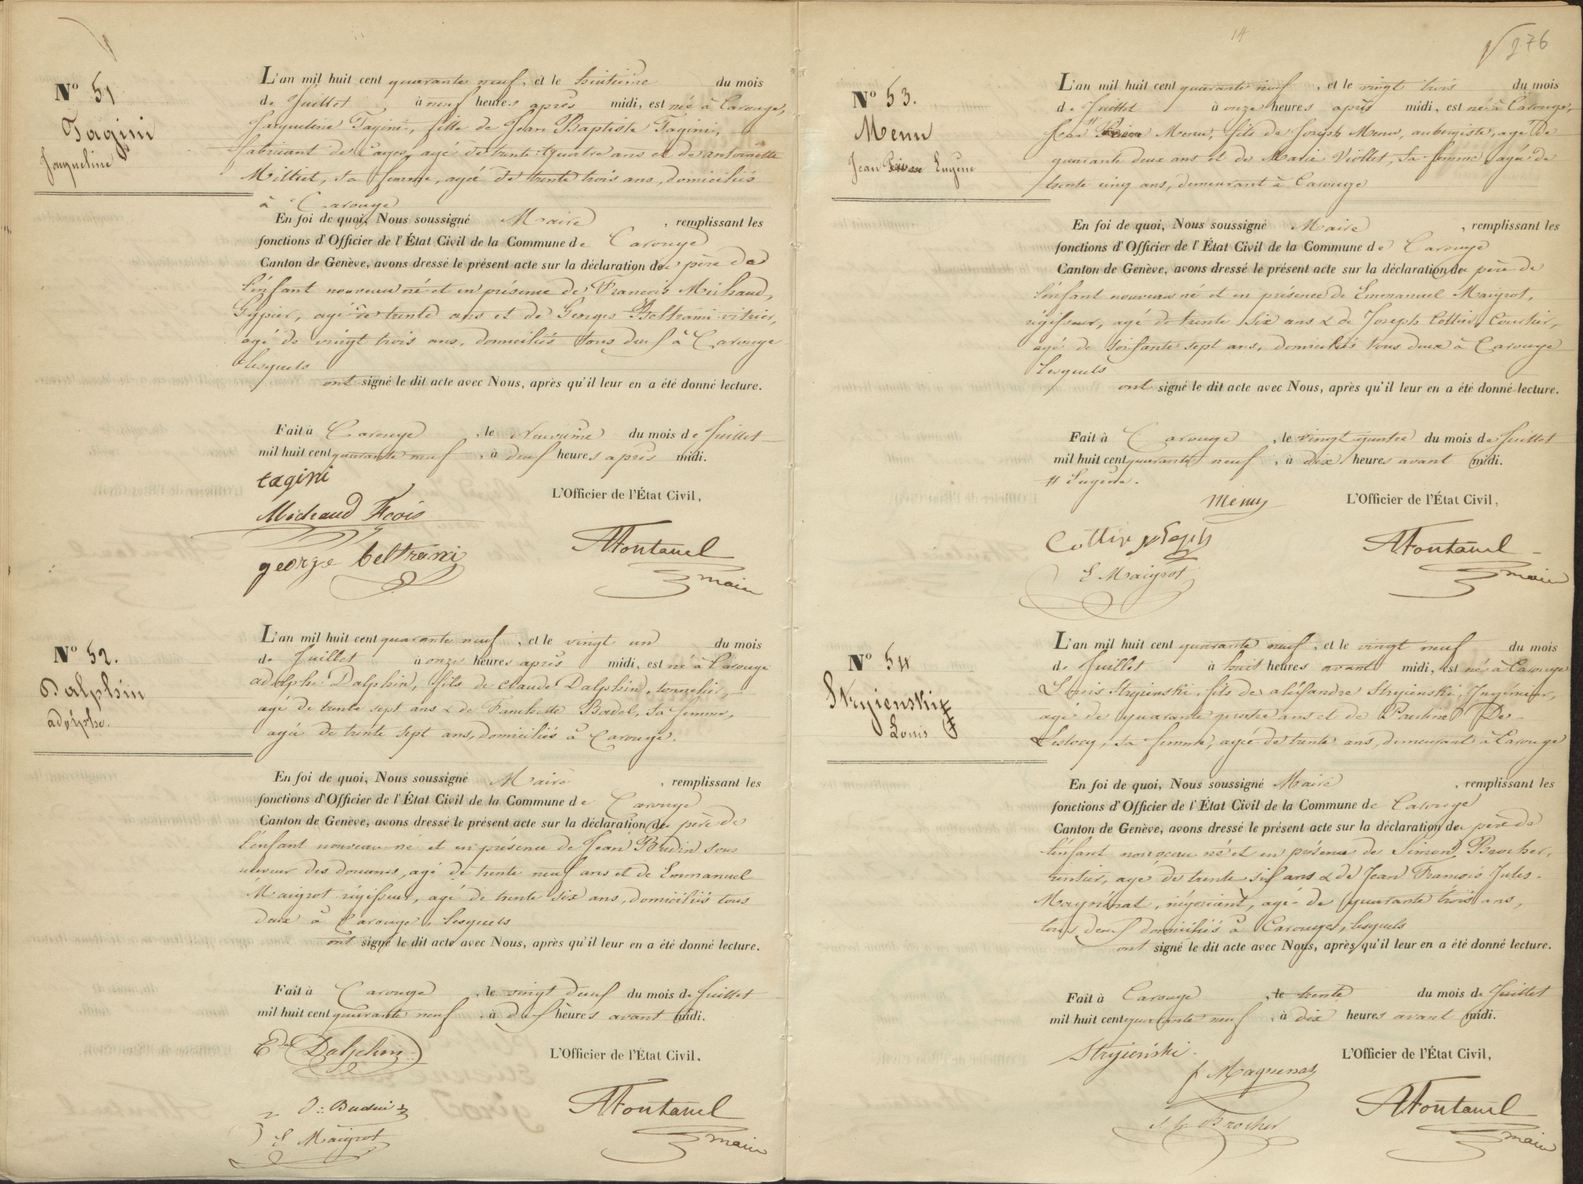 N° 51
Tagini
Jaqueline
L'an mil huit cent quarante neuf, et le huitième du mois
de Juillet, à neuf heures après midi, est né à Carouge,
Jaqueline Tagini, fille de Jean Baptiste Tagini,
fabricant de Cages, agé de trente quatre ans et de antoinette
sa femme, agée de trente trois ans, domiciliés
à Carouge
En foi de quoi, Nous soussigné Maire, remplissant les
fonctions d'Officier de l'État Civil de la Commune de Carouge
Canton de Genève, avons dressé le présent acte sur la déclaration du père de
l'enfant nouveau né et en présence de François Michaud,
Gypier, agé de trente ans et de Georges Beltrami vitrier,
agé de vingt trois ans, domiciliés tous deux à Carouge
lesquels
ont signé le dit acte avec Nous, après qu'il leur en a été donné lecture.
Fait à Carouge, le Neuvième du mois de Juillet
mil huit cent quarante neuf, à deux heures après midi.
tagini
L'Officier de l'État Civil,
Michaud Fcois
george beltrami
AFontanel
maire
N° 52.
Dalphin
adolphe.
L'an mil huit cent quarante neuf, et le vingt un du mois
de Juillet à onze heures après midi, est né à Carouge
adolphe Dalphin, fils de Claude Dalphin, tonnelier,
agé de trente sept ans & de Fanchette Badel, sa femme,
agée de trente sept ans, domiciliés à Carouge.
En foi de quoi, Nous soussigné Maire, remplissant les
fonctions d'Officier de l'État Civil de la Commune de Carouge
Canton de Genève, avons dressé le présent acte sur la déclaration du père de
l'enfant nouveau né et en présence de Jean Budin sous
receveur des douanes, agé de trente neuf ans et de Emmanuel
Maigrot régisseur, agé de trente six ans, domiciliés tous
deux à Carouge, lesquels
ont signé le dit acte avec Nous, après qu'il leur en a été donné lecture.
Fait à Carouge, le vingt deux du mois de Juillet
mil huit cent quarante neuf, à dix heures avant midi.
Dalphin
L'Officier de l'État Civil,
Budin
E Maigrot
AFontanel
maire
14
276
N° 53.
Menu
Jean Eugène
L'an mil huit cent quarante neuf, et le vingt trois du mois
de Juillet à onze heures après midi, est né à Carouge,
Jean Menu, fils de Joseph Menu, aubergiste, agé de
quarante deux ans et de Marie Viollet, sa femme agée de
trente cinq ans, demeurant à Carouge
En foi de quoi, Nous soussigné Maire, remplissant les
fonctions d'Officier de l'État Civil de la Commune de Carouge
Canton de Genève, avons dressé le présent acte sur la déclaration du père de
l'enfant nouveau né et en présence de Emmanuel Maigrot,
régisseur, agé de trente six ans & de Joseph Cottier, Courtier,
agé de soixante sept ans, domiciliés tous deux à Carouge
lesquels
ont signé le dit acte avec Nous, après qu'il leur en a été donné lecture.
Fait à Carouge, le vingt quatre du mois de Juillet
mil huit cent quarante neuf, à dix heures avant midi.
# Eugène.
Menu
L'Officier de l'État Civil,
Joseph
E Maigrot
AFontanel
maire
N° 54
Stryienski
Louis
L'an mil huit cent quarante neuf, et le vingt neuf du mois
de Juillet à huit heures avant midi, est né à Carouge
Louis Stryienski, fils de alexandre Stryienski, Ingénieur,
agé de quarante quatre ans et de Pauline De
Lestocq, sa femme, agée de trente ans, demeurant à Carouge
En foi de quoi, Nous soussigné Maire, remplissant les
fonctions d'Officier de l'État Civil de la Commune de Carouge
Canton de Genève, avons dressé le présent acte sur la déclaration du père de
l'enfant nouveau né et en présence de Simon Brocher,
rentier, agé de trente six ans & de Jean François Jules
négociant, agé de quarante trois ans,
tous deux domiciliés à Carouge, lesquels
ont signé le dit acte avec Nous, après qu'il leur en a été donné lecture.
Fait à Carouge, le trente du mois de Juillet
mil huit cent quarante neuf, à dix heures avant midi.
Stryienski.
L'Officier de l'État Civil,
Brocher
AFontanel
maire